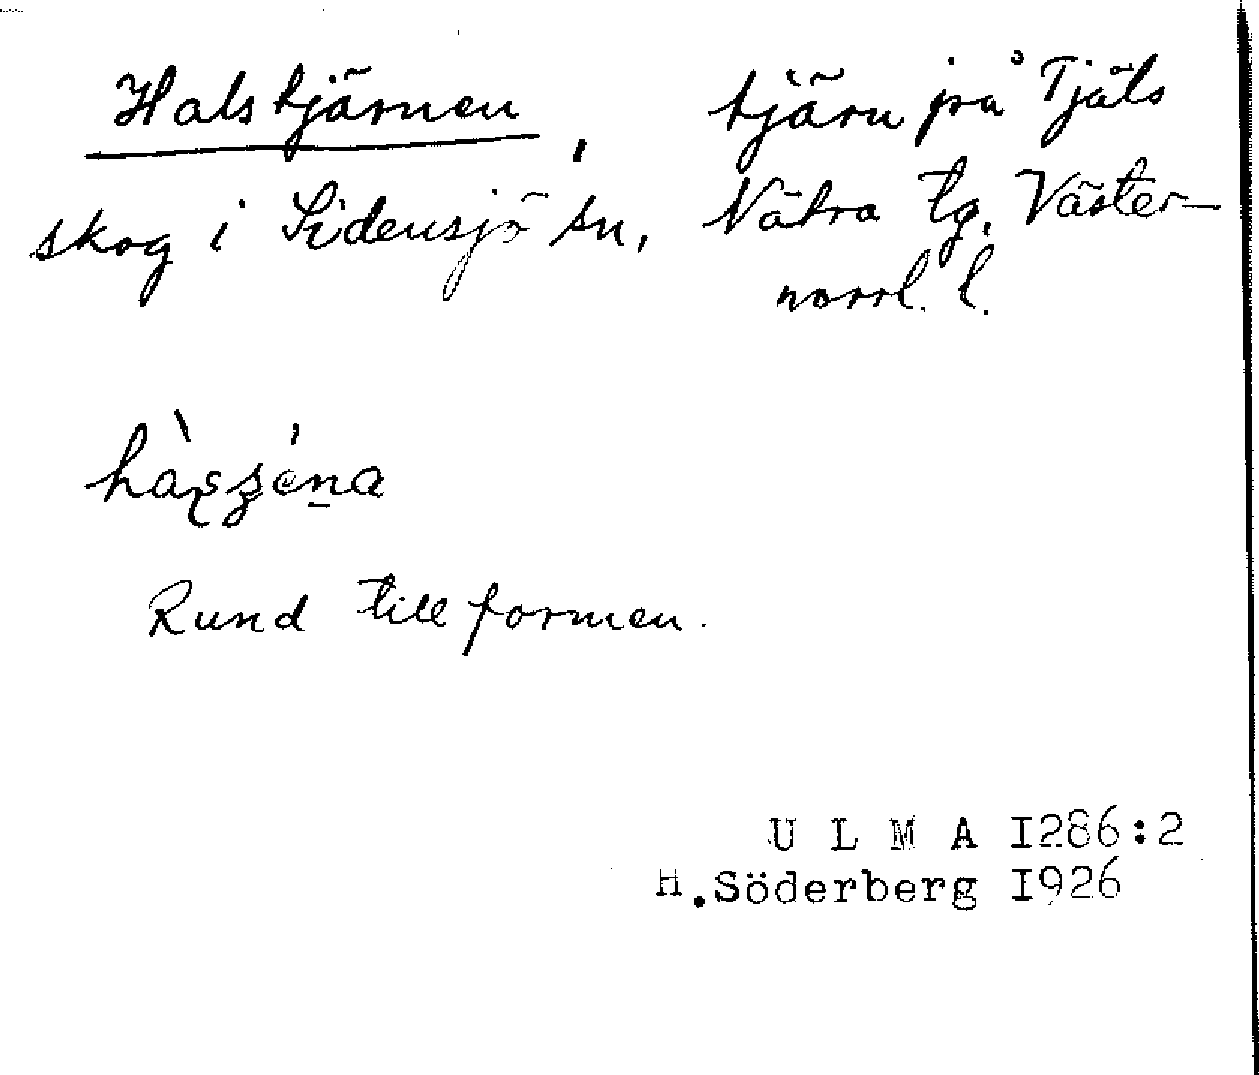 Halstjärnen, tjärn på Tjäls
skog i Sidensjö sn, Nätra tg. Väster-
norrl. l.
Rund till formen.
U L M A I286:2
H.Söderberg I926